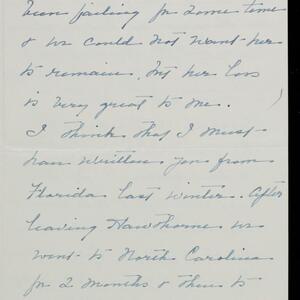 been failing for some time
& we could not want her
to remain. but her loss
is very great to me.
I think that I must
have written you from
Florida last winter. After
leaving Hawthorne we
went to North Carolina
for 2 months & then to